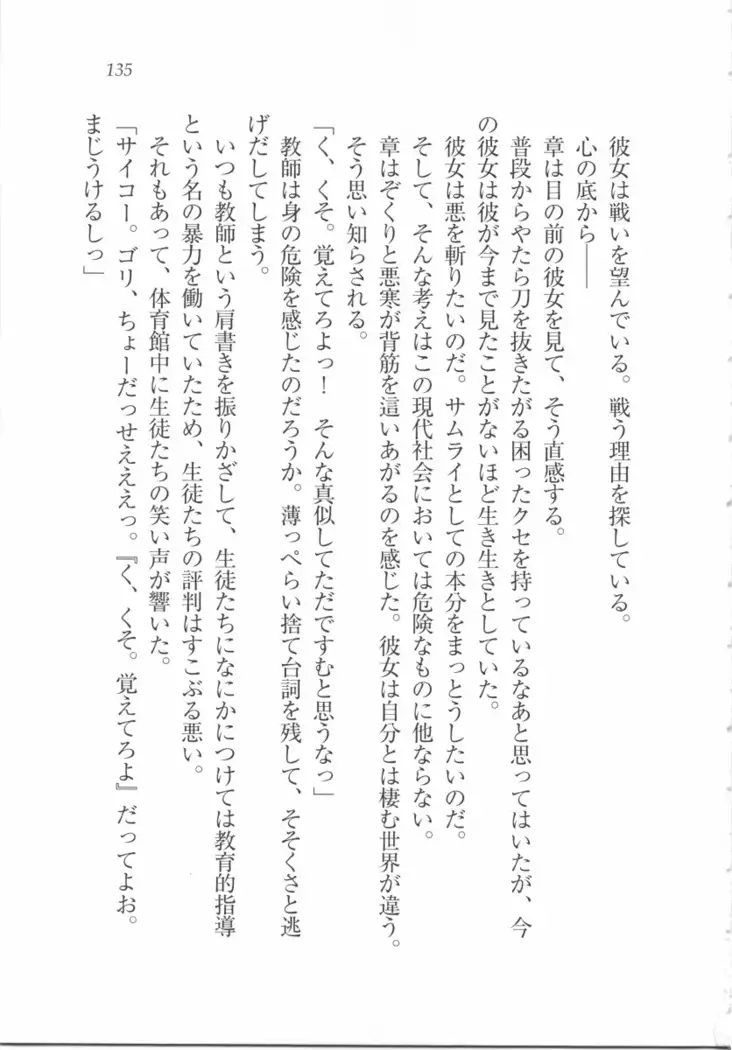 135
彼女は戦いを望んでいる。戦う理由を探している。
心の底から――
章は目の前の彼女を見て、そう直感する。
普段からやたら刀を抜きたがる困ったクセを持っているなあと思ってはいたが、今
の彼女は彼が今まで見たことがないほど生き生きとしていた。
彼女は悪を斬りたいのだ。サムライとしての本分をまっとうしたいのだ。
そして、そんな考えはこの現代社会においては危険なものに他ならない。
章はぞくりと悪寒が背筋を這いあがるのを感じた。彼女は自分とは棲む世界が違う。
そう思い知らされる。
「く、くそ。覚えてろよっ！　そんな真似してただですむと思うなっ」
教師は身の危険を感じたのだろうか。薄っぺらい捨て台詞を残して、そそくさと逃
げだしてしまう。
いつも教師という肩書きを振りかざして、生徒たちになにかにつけては教育的指導
という名の暴力を働いていたため、生徒たちの評判はすこぶる悪い。
それもあって、体育館中に生徒たちの笑い声が響いた。
「サイコー。ゴリ、ちょーだっせえええっ。『く、くそ。覚えてろよ』だってよお。
まじうけるしっ」